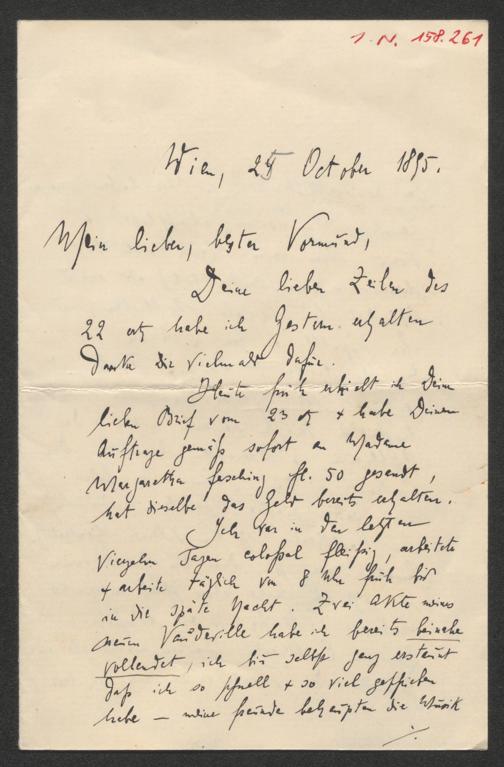 1. N. 158.261
Wien, 24 October 1895.
Mein lieber, bester Vormund,
Deine lieben Zeilen des
22 ct habe ich Gestern erhalten
Danke dir vielmals dafür.
Heute früh erhielt ich Dein
lieben Brief vom 23 ct & habe Deinem
Auftrage gemäß sofort an Madame
Margarethe Fesching fl. 50 gesandt,
hat dieselbe das Geld bereits erhalten.
Ich war in den letzten
Vierzehn Tagen coloßal fleißig, arbeitete
& arbeite täglich von 8 Uhr früh bis
in die späte Nacht. Zwei Akte meines
neuen Vaudeville habe ich bereits beinahe
vollendet, ich bin selbst ganz erstaunt
daß ich so schnell & so viel geschrieben
habe — meine Freunde behaupten die Musik
./.